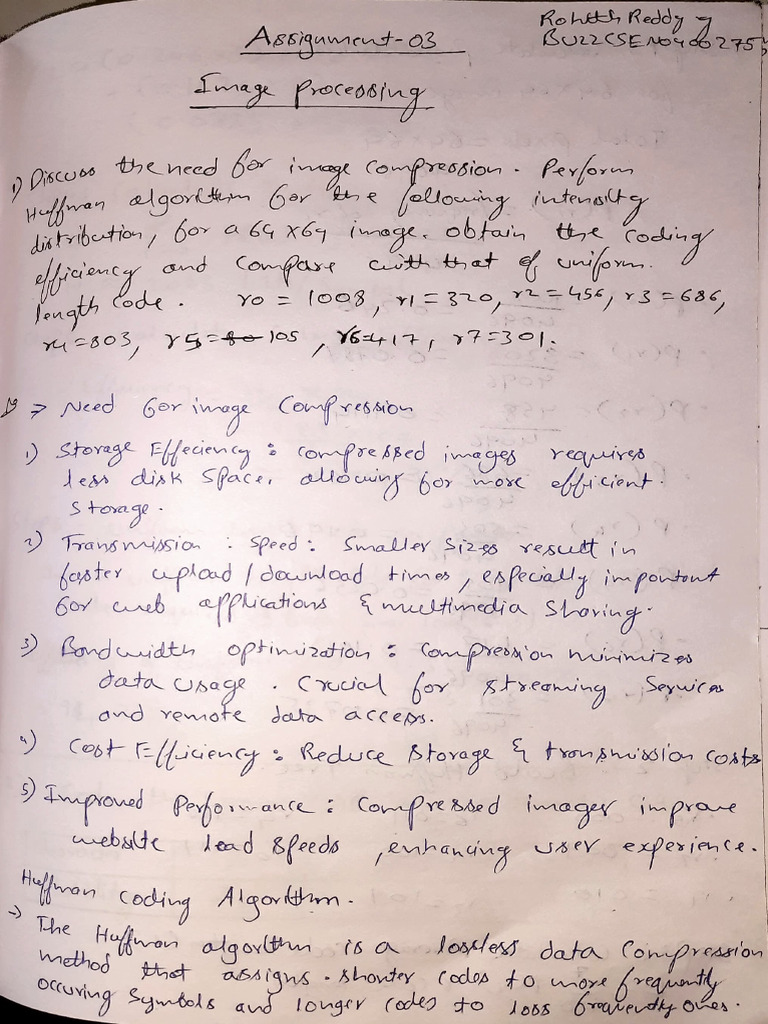 Assignment-03
Rohith Reddy y
BU22CSEN0400275
Image processing
1) Discuss the need for image compression. Perform
Huffman algorithm for the following intensity
distribution, for a 64x64 image. obtain the coding
efficiency and compare with that of uniform
length code. r0 = 1008, r1=320, r2=456, r3=686,
r4=803, r5=80 105, r6=417, r7=301.
=> Need for image compression
1) Storage Effeciency: compressed images requires
less disk space, allowing for more efficient.
Storage.
2) Transmission: Speed: Smaller Sizes result in
faster upload/download times, especially important
for web applications & multimedia sharing.
3) Bandwidth optimization: compression minimizes
data usage. Crucial for streaming services
and remote data access.
4) Cost Efficiency: Reduce storage & transmission costs
5) Improved Performance: compressed images improve
website load speeds, enhancing user experience.
Huffman coding Algorithm.
-> The Huffman algorithm is a lossless data compression
method that assigns. shorter codes to more frequently
occuring symbols and longer codes to less frequently ones.